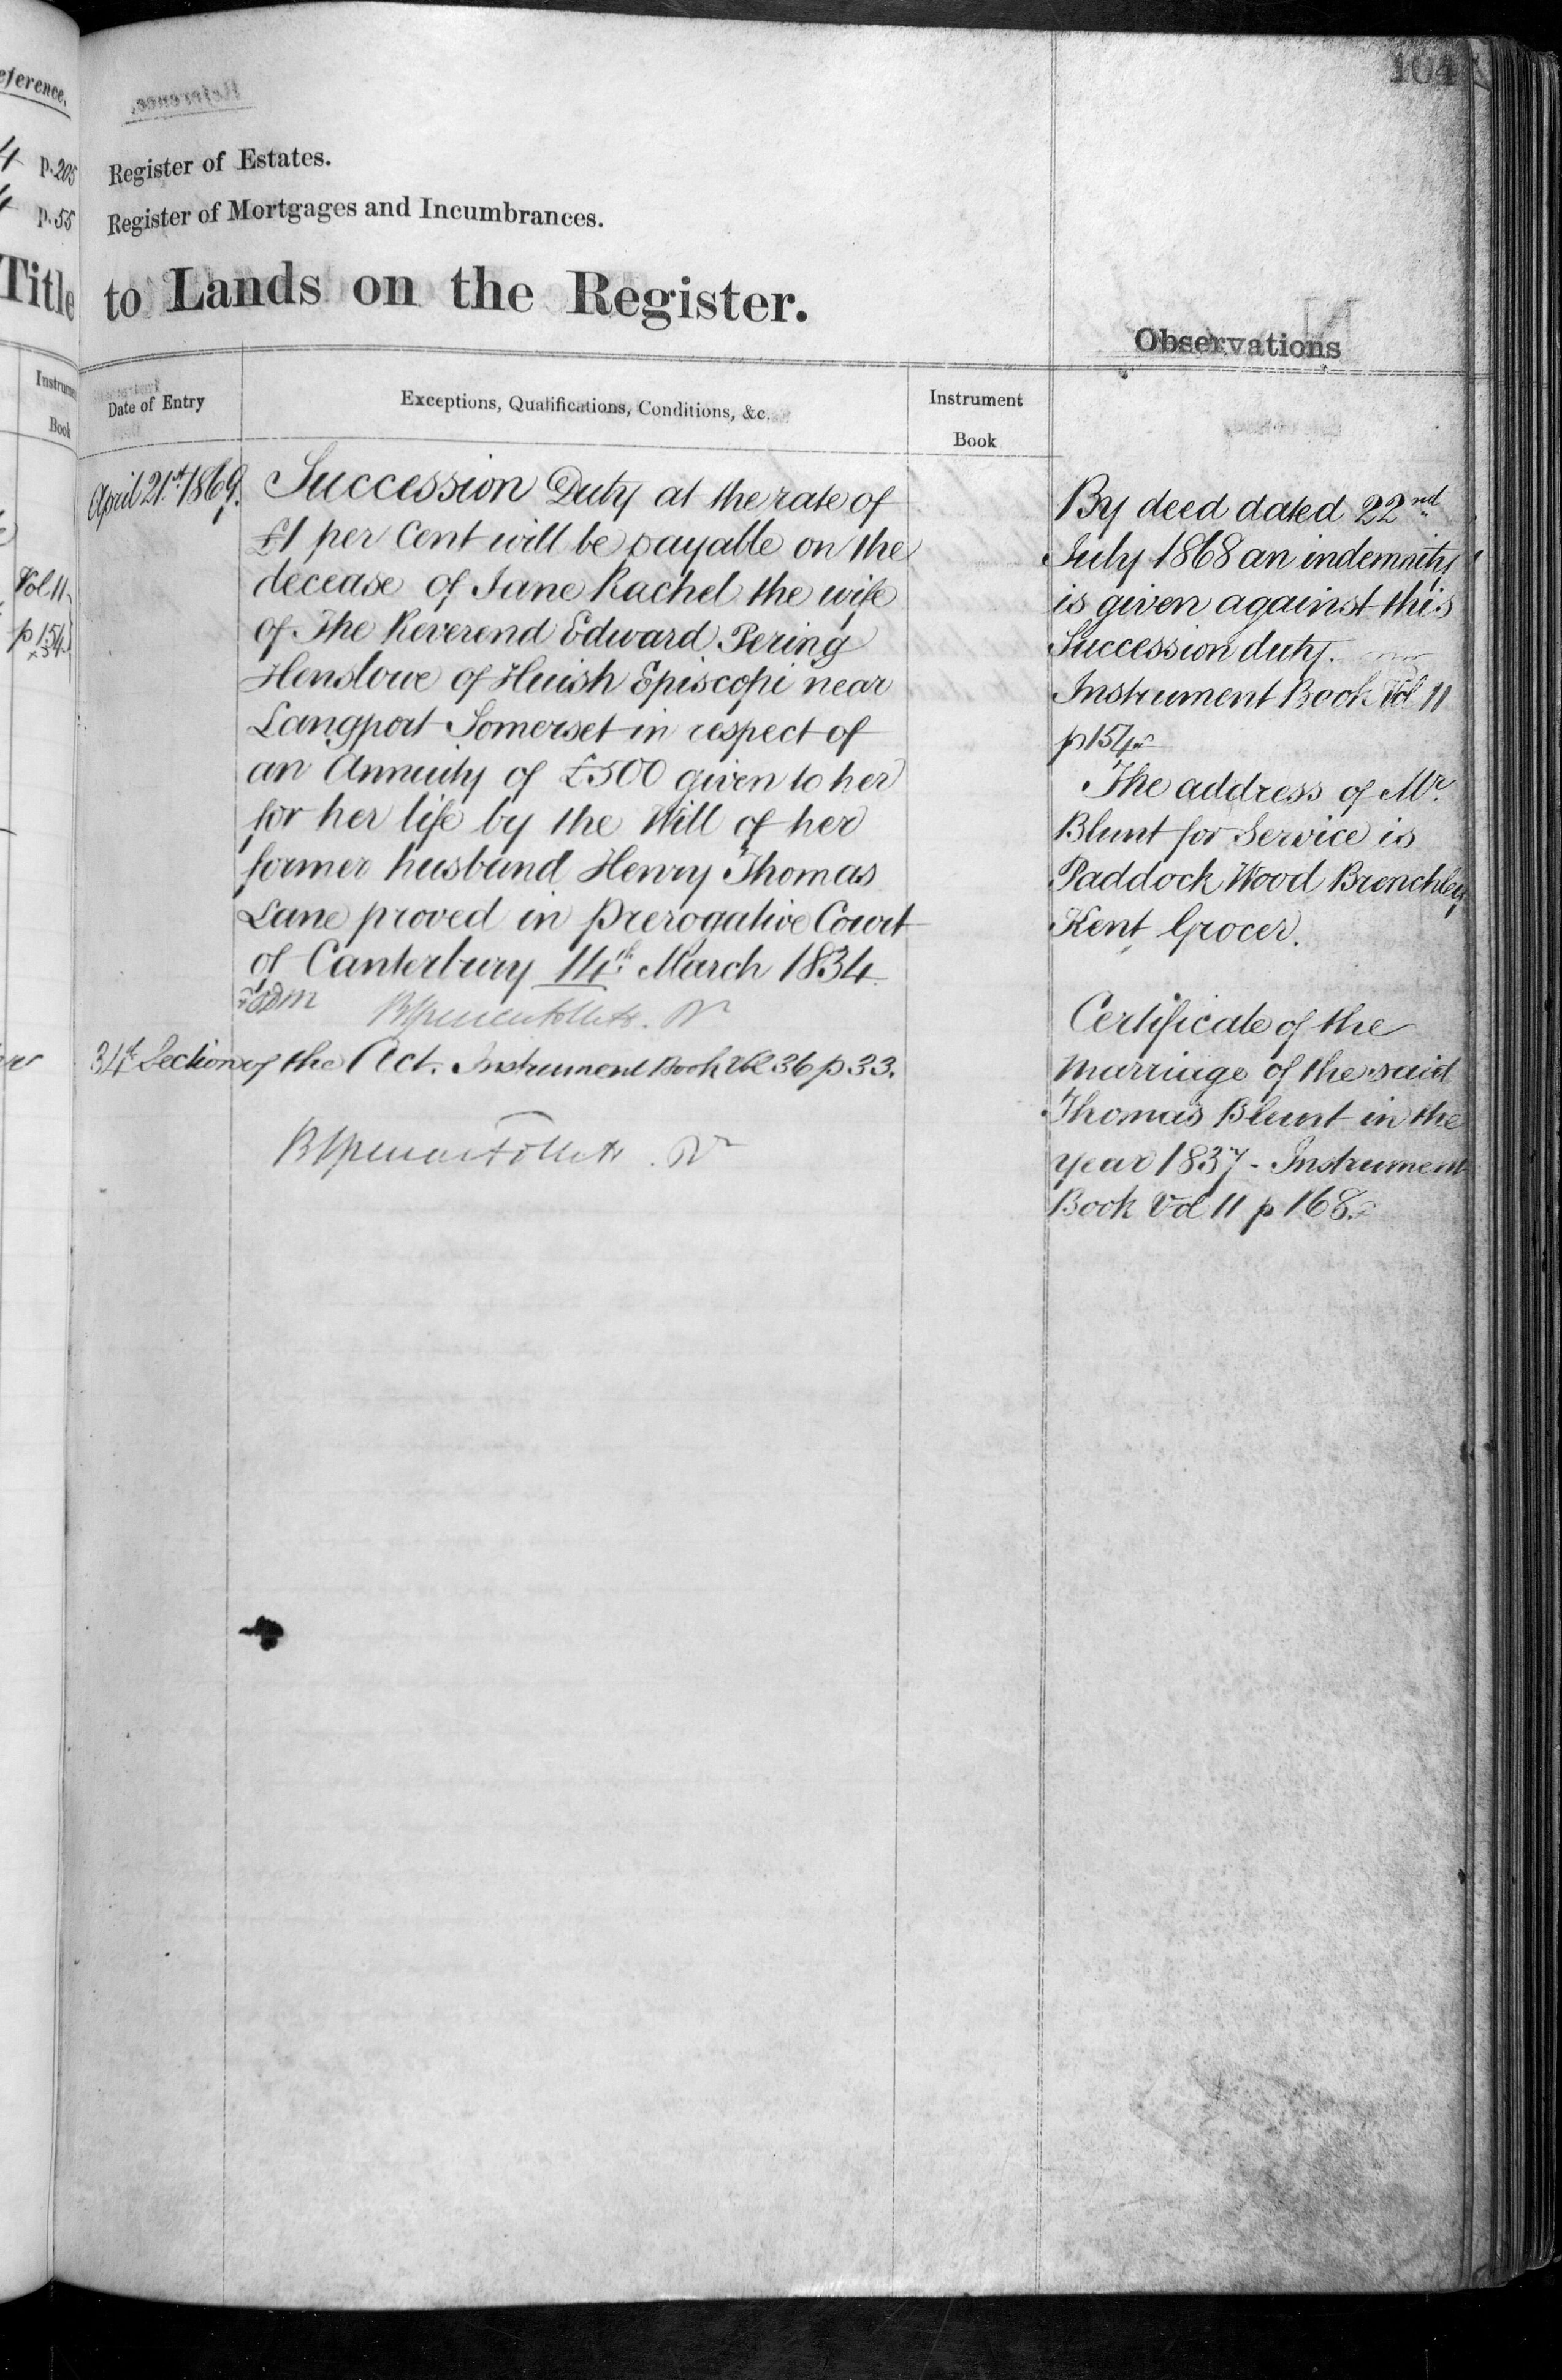 104
eference.
p. 205
p. 55
Title
Instrume
Book
Vol 11
p 154
Register of Estates.
Register of Mortgages and Incumbrances.
to Lands on the Register.
Observations
Date of Entry
Exceptions, Qualifications, Conditions, &c.
Instrument
Book
April 21st 1869.
Succession Duty at the rate of
£1 per Cent will be payable on the
decease of Jane Rachel the wife
of The Reverend Edward Pering
Henslowe of Huish Episcopi near
Langport Somerset in respect of
an Annuity of £500 given to her
for her life by the Will of her
former husband Henry Thomas
Lane proved in Prerogative Court
of Canterbury 14th March 1834
34th Section of the Act. Instrument Book Vol 36 p 33.
By deed dated 22nd
July 1868 an indemnity
is given against this
Succession duty.
Instrument Book Vol 11
p 154
The address of Mr.
Blunt for Service is
Paddock Wood Brenchley
Kent Grocer.
Certificate of the
Marriage of the said
Thomas Blunt in the
year 1837 - Instrument
Book Vol 11 p 168.